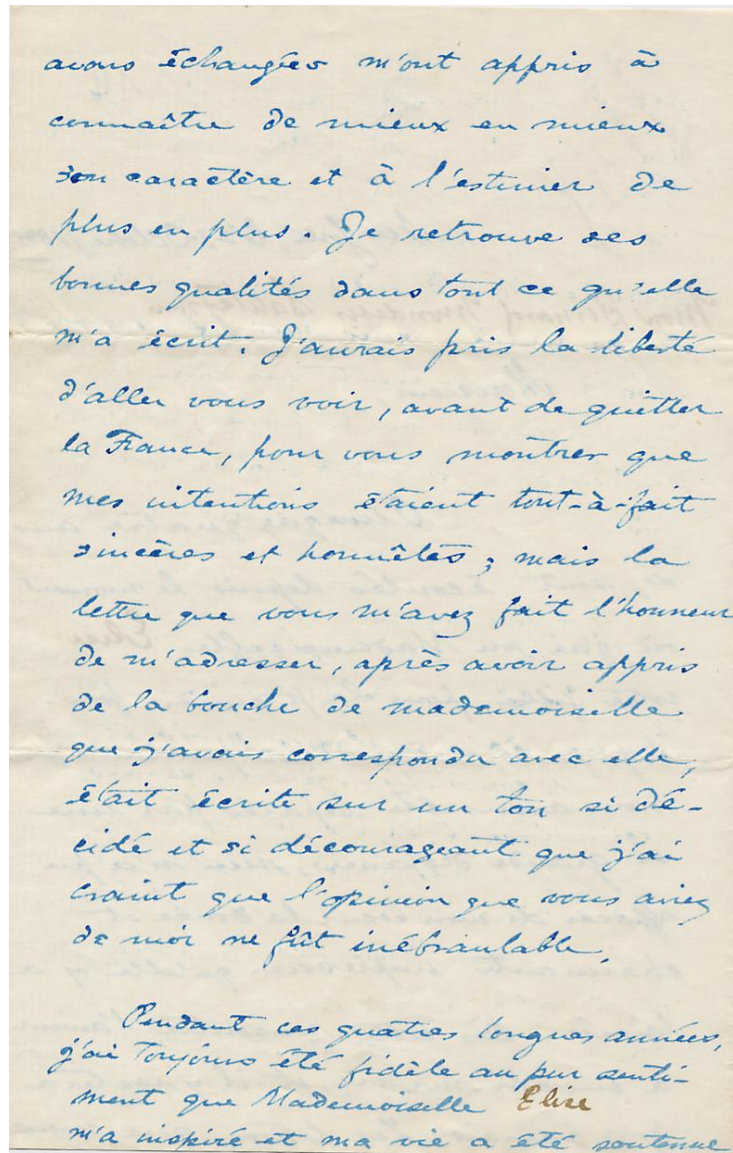 avons échangées m'ont appris à
connaître de mieux en mieux
son caractère et à l'estimer de
plus en plus. Je retrouve ses
bonnes qualités dans tout ce qu'elle
m'a écrit. J'aurais pris la liberté
d'aller vous voir, avant de quitter
la France, pour vous montrer que
mes intentions étaient tout-à-fait
sincères et honnêtes; mais la
lettre que vous m'avez fait l'honneur
de m'adresser, après avoir appris
de la bouche de mademoiselle
que j'avais correspondu avec elle,
était écrite sur un ton si dé-
cidé et si décourageant que j'ai
craint que l'opinion que vous aviez
de moi ne fût inébranlable.
Pendant ces quatres longues années,
j'ai toujours été fidèle au pur senti-
ment que Mademoiselle Elise
m'a inspiré et ma vie a été soutenue